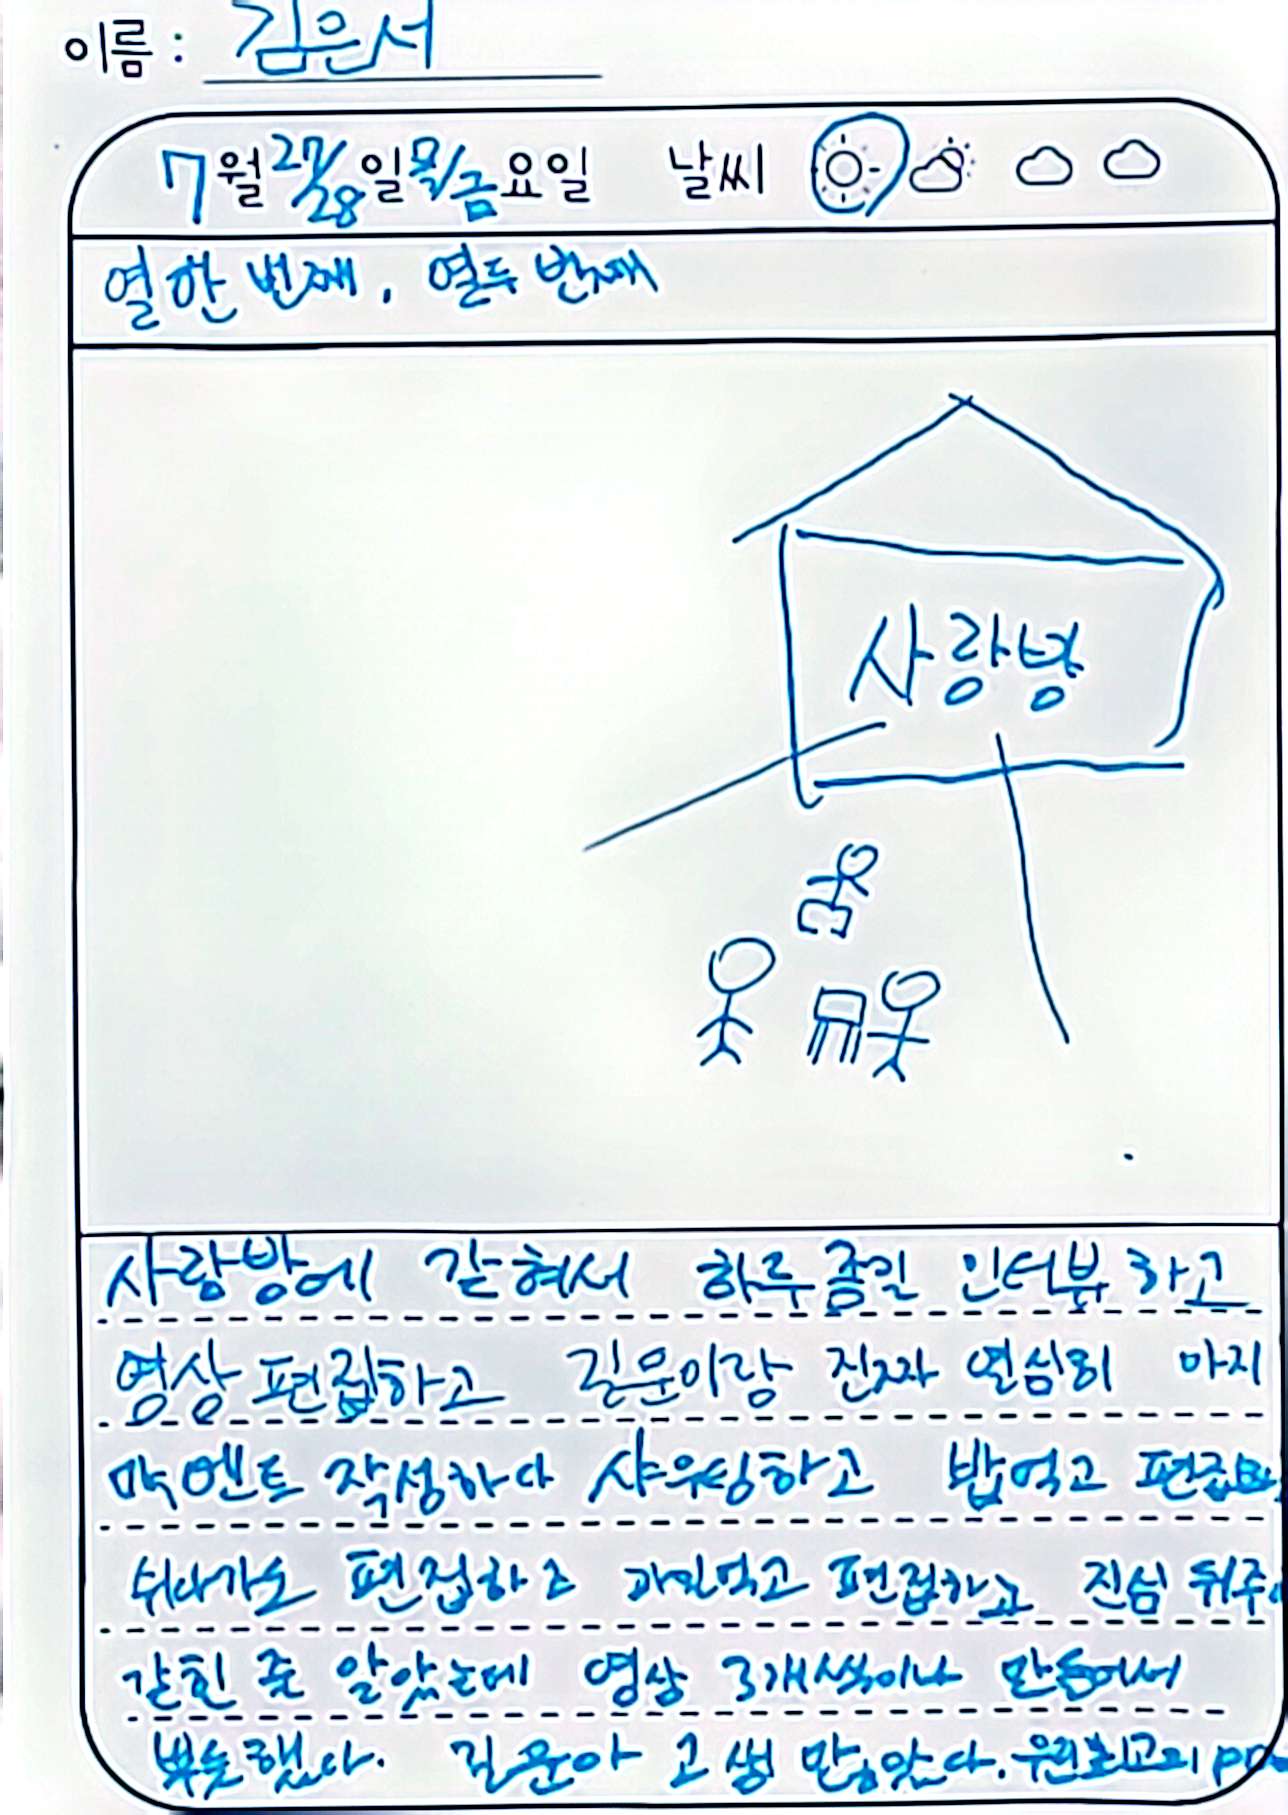 이름 : 김은서
7월 27/28일 목/금요일 날씨
열한 번째, 열두 번째
사랑방
사랑방에 갇혀서 하루종일 인터뷰하고
영상편집하고 길운이랑 진짜 열심히 마지
막멘트 작성하다 샤워하고 밥먹고 편집
쉬다가도 편집하고 과일먹고 편집하고 진심 뒤주
갇힌 줄 알았는데 영상 3개씩이나 만들어서
뿌듯했다. 길운아 고생 많았다. 우리 최고의